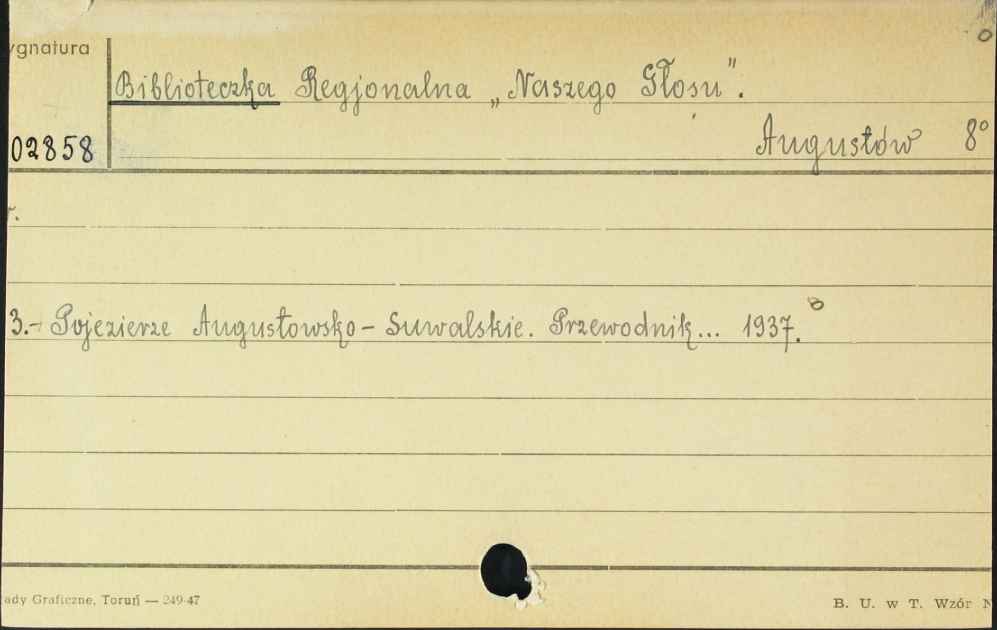 ygnatura
Biblioteczka Regjonalna „Naszego Głosu".
02858
Augustów 8°
r.
3.- Pojezierze Augustowsko-Suwalskie. Przewodnik... 1937.
ady Graficzne, Toruń — 249-47
B. U. w T. Wzór N